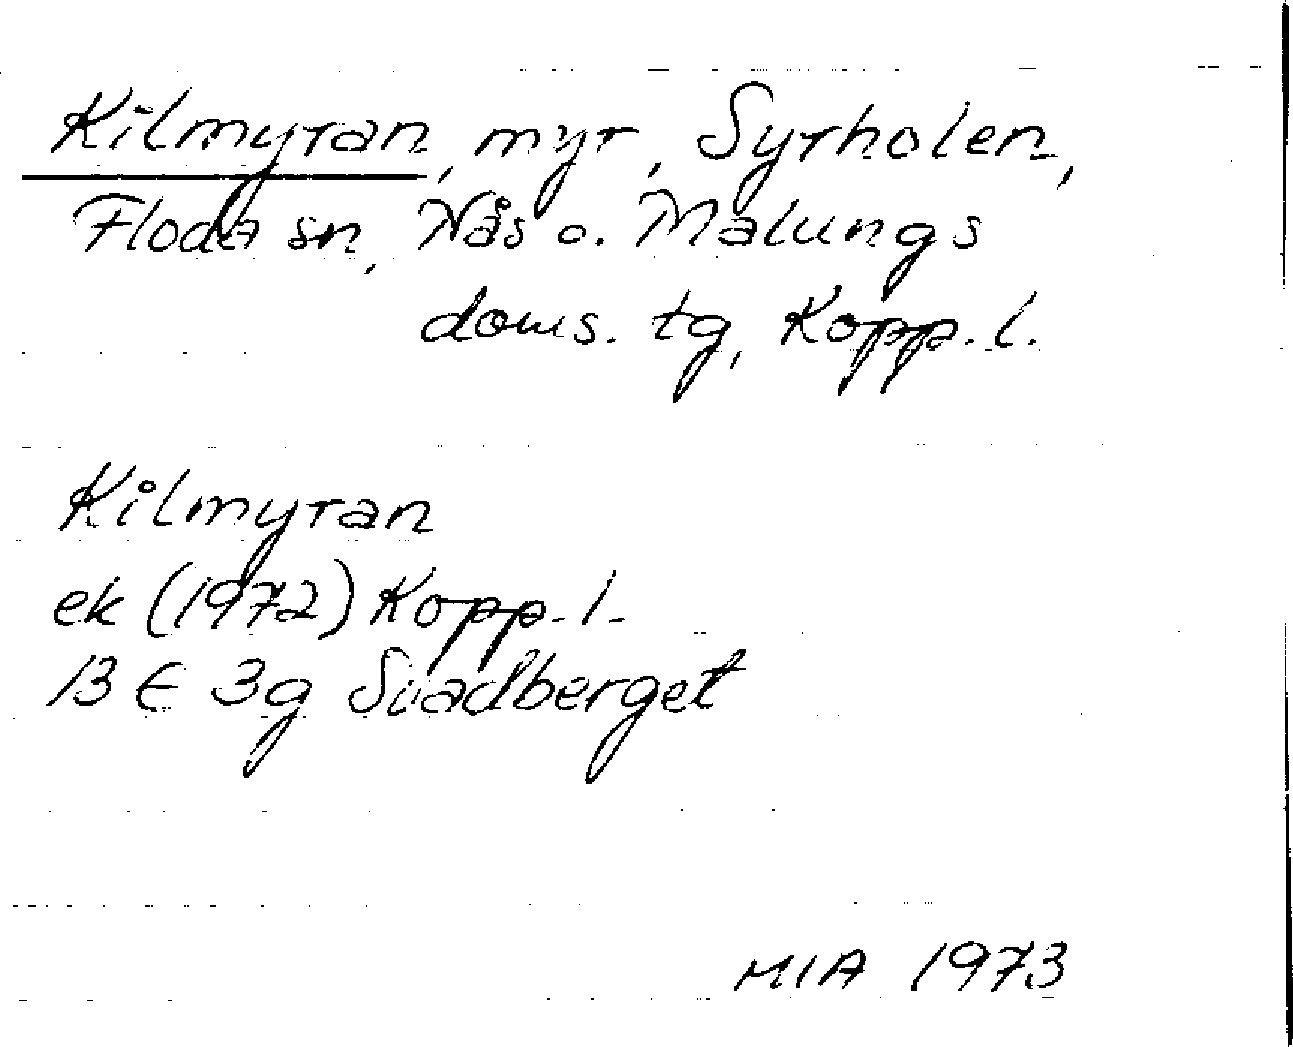 Kilmyran, myr, Syrholen,
Floda sn, Nås o. Malungs
doms. tg, Kopp. l.
Kilmyran
ek (1972) Kopp. l.
13 E 3g Svadberget
MIA 1973